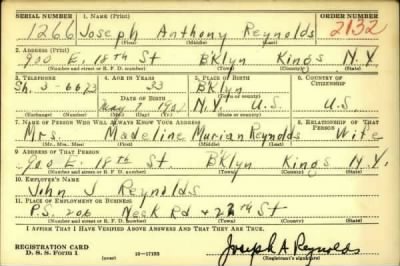 SERIAL NUMBER 1. NAME (Print) ORDER NUMBER
1266 Joseph Anthony Reynolds 2132
(First) (Middle) (Last)
2. ADDRESS (Print)
900 E. 18th St BKlyn Kings N.Y.
(Number and street or R. F. D. number) (Town) (County) (State)
3. TELEPHONE 4. AGE IN YEARS 5. PLACE OF BIRTH 6. COUNTRY OF CITIZENSHIP
Sh. 5-6673 33 BKlyn
DATE OF BIRTH (Town or county)
May 1907 N.Y. U.S. U.S.
(Exchange) (Number) (Mo.) (Day) (Yr.) (State or country)
7. NAME OF PERSON WHO WILL ALWAYS KNOW YOUR ADDRESS 8. RELATIONSHIP OF THAT PERSON
Mrs. Madeline Reynolds Wife
(Mr., Mrs., Miss) (First) (Middle) (Last)
9. ADDRESS OF THAT PERSON
900 E. 18th St BKlyn Kings N.Y.
(Number and street or R. F. D. number) (Town) (County) (State)
10. EMPLOYER'S NAME
John J Reynolds
11. PLACE OF EMPLOYMENT OR BUSINESS
P.S. 206 Neck Rd + St
(Number and street or R. F. D. number) (Town) (County) (State)
I AFFIRM THAT I HAVE VERIFIED ABOVE ANSWERS AND THAT THEY ARE TRUE.
REGISTRATION CARD
D. S. S. Form 1 16-17105 Joseph A. Reynolds
(over) (Registrant's signature)